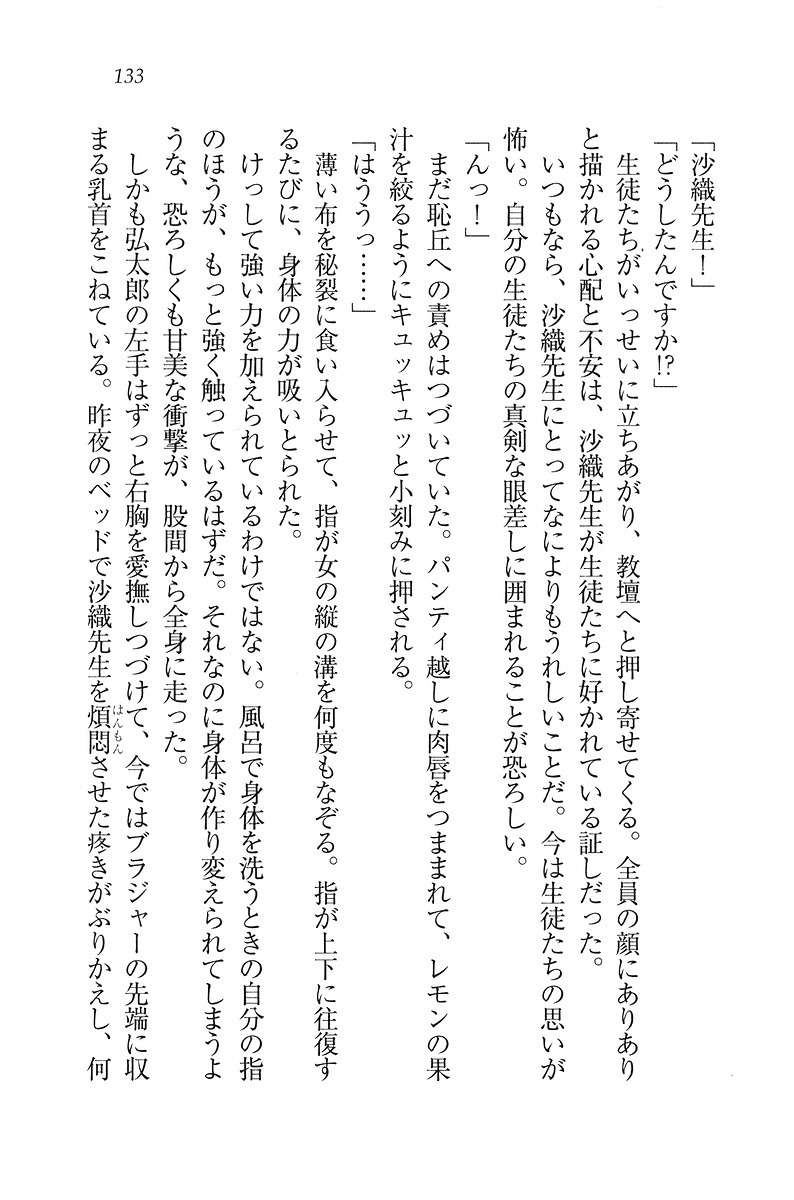 133
「沙織先生！」
「どうしたんですか!?」
　生徒たちがいっせいに立ちあがり、教壇へと押し寄せてくる。全員の顔にありあり
と描かれる心配と不安は、沙織先生が生徒たちに好かれている証しだった。
　いつもなら、沙織先生にとってなによりもうれしいことだ。今は生徒たちの思いが
怖い。自分の生徒たちの真剣な眼差しに囲まれることが恐ろしい。
「んっ！」
　まだ恥丘への責めはつづいていた。パンティ越しに肉唇をつままれて、レモンの果
汁を絞るようにキュッキュッと小刻みに押される。
「はううっ……」
　薄い布を秘裂に食い入らせて、指が女の縦の溝を何度もなぞる。指が上下に往復す
るたびに、身体の力が吸いとられた。
　けっして強い力を加えられているわけではない。風呂で身体を洗うときの自分の指
のほうが、もっと強く触っているはずだ。それなのに身体が作り変えられてしまうよ
うな、恐ろしくも甘美な衝撃が、股間から全身に走った。
　しかも弘太郎の左手はずっと右胸を愛撫しつづけて、今ではブラジャーの先端に収
まる乳首をこねている。昨夜のベッドで沙織先生を煩悶はんもんさせた疼きがぶりかえし、何